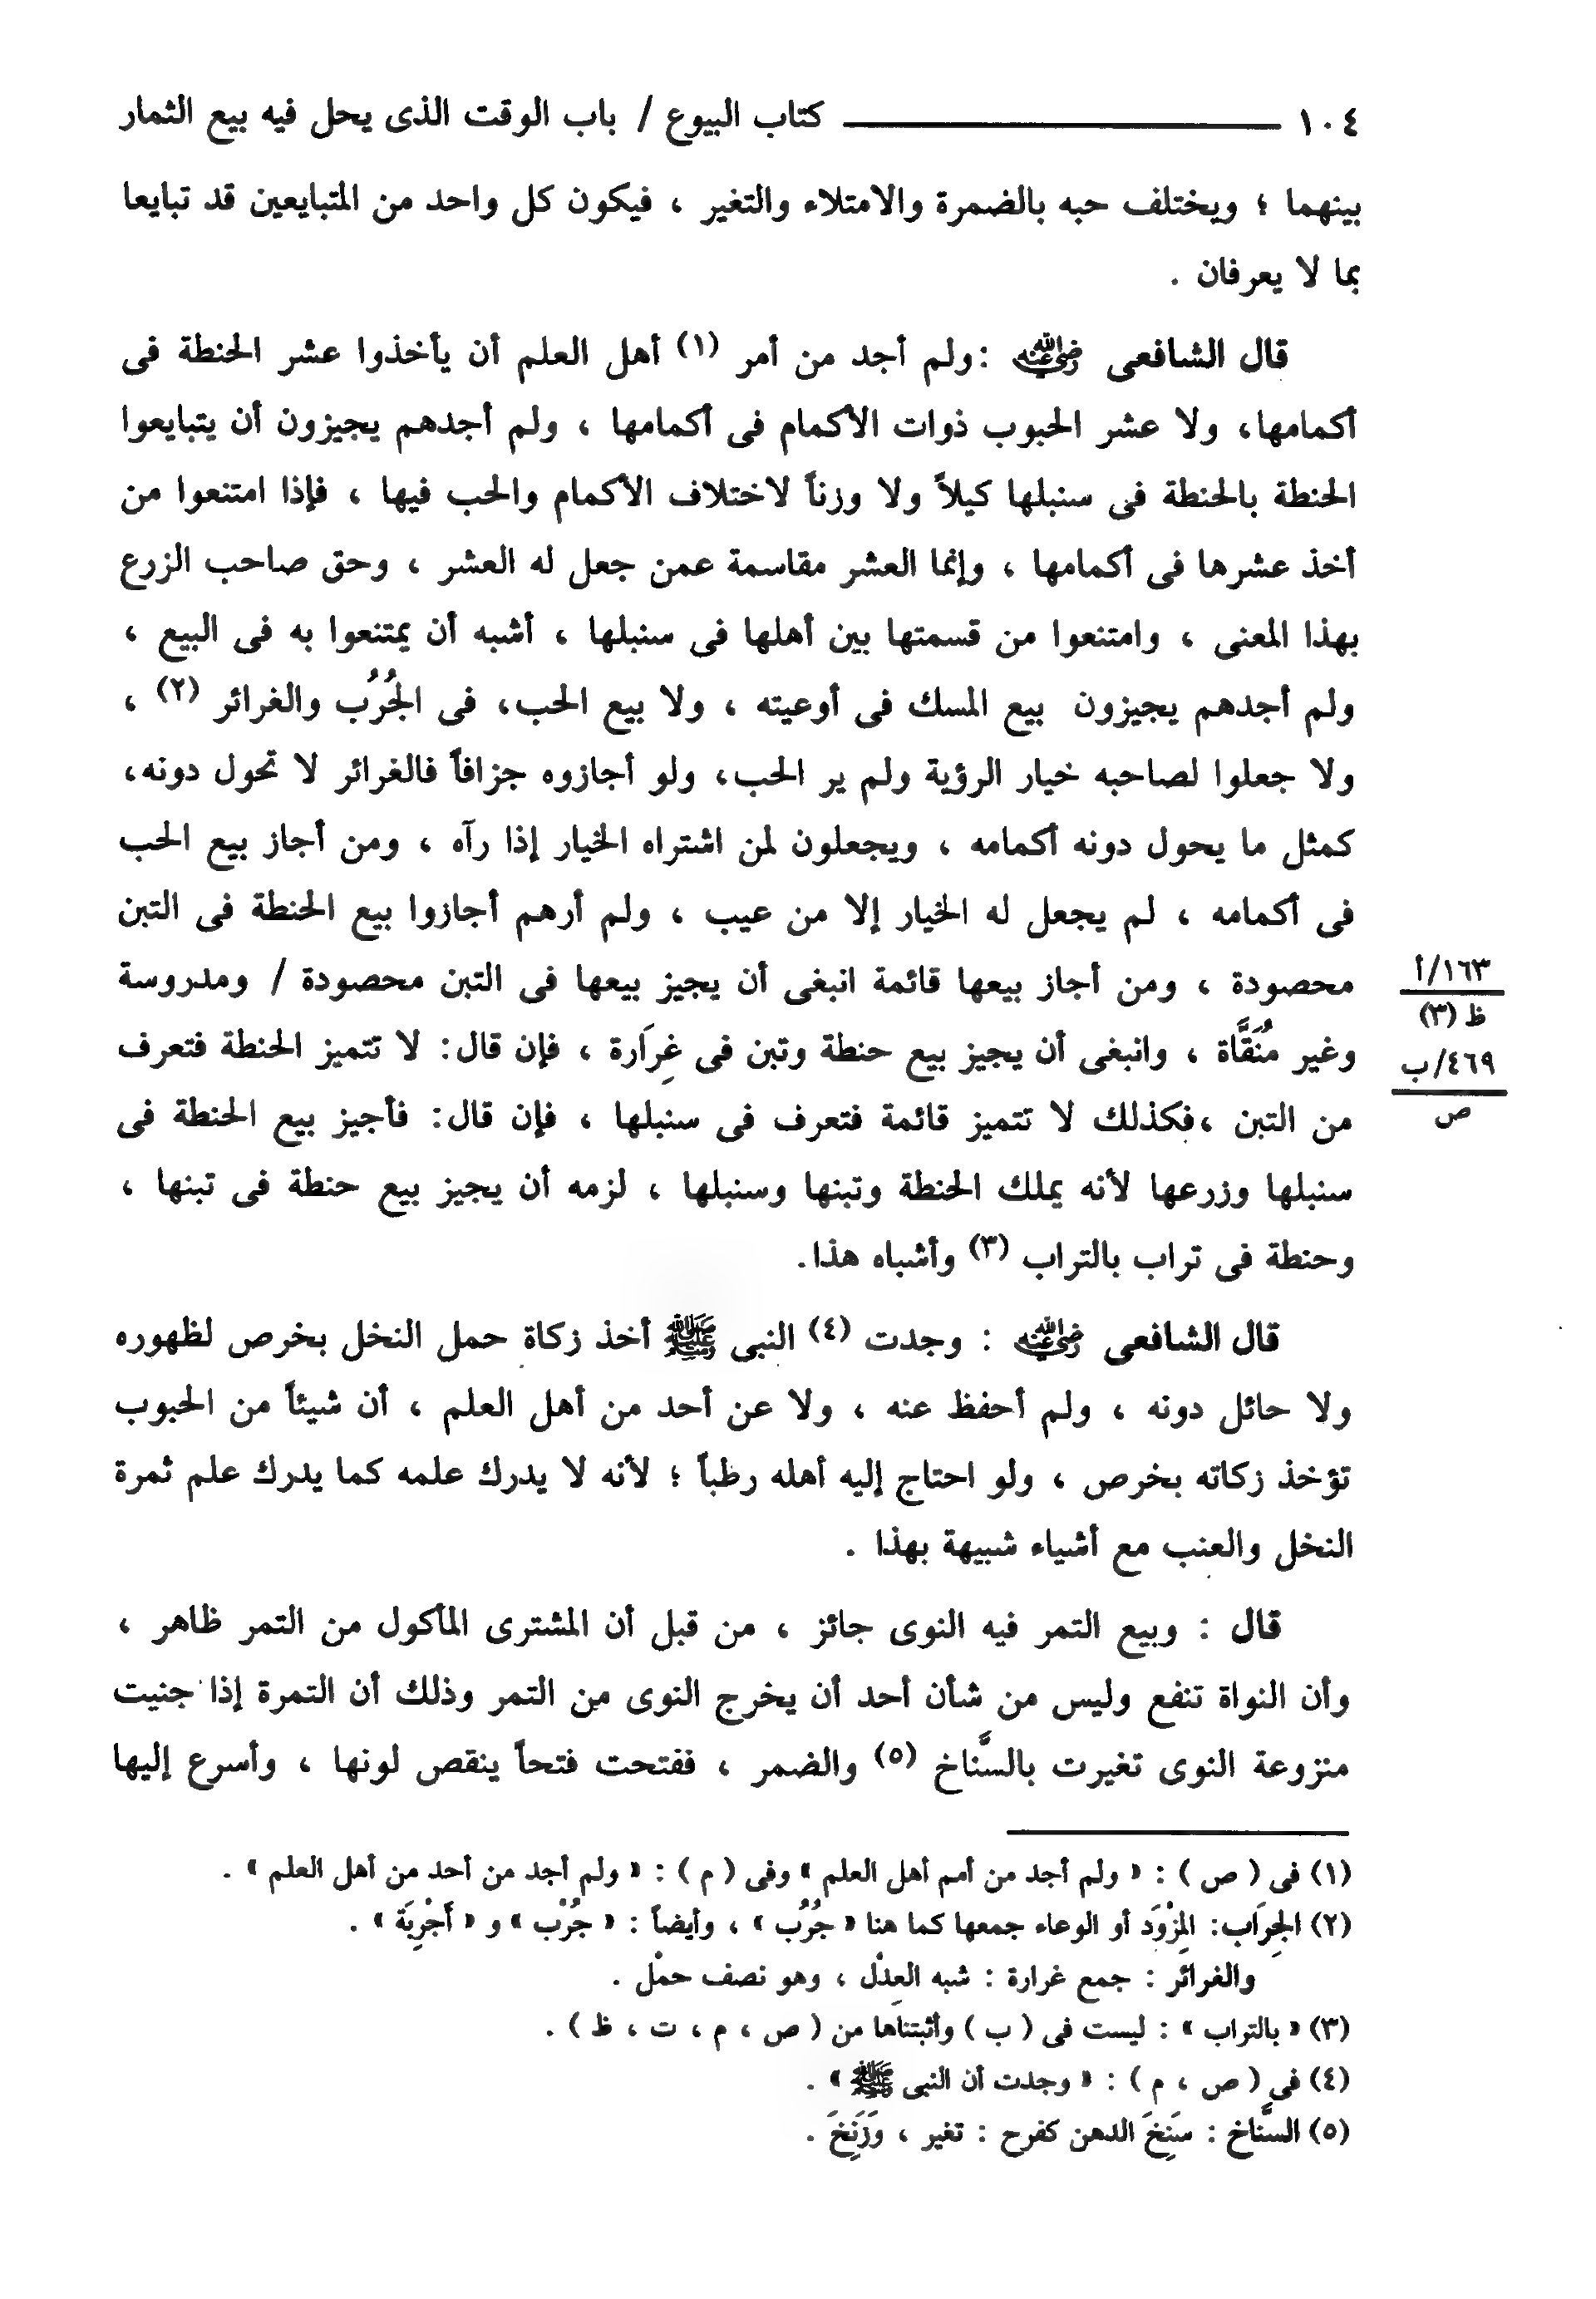 ١٠٤ ــــــــــــــــــ كتاب البيوع / باب الوقت الذى يحل فيه بيع الثمار
بينهما ؛ ويختلف حبه بالضمرة والامتلاء والتغير ، فيكون كل واحد من المتبايعين قد تبايعا
بما لا يعرفان .
قال الشافعى رضي الله عنه : ولم أجد من أمر (١) أهل العلم أن يأخذوا عشر الحنطة فى
أكمامها، ولا عشر الحبوب ذوات الأكمام فى أكمامها ، ولم أجدهم يجيزون أن يتبايعوا
الحنطة بالحنطة فى سنبلها كيلاً ولا وزناً لاختلاف الأكمام والحب فيها ، فإذا امتنعوا من
أخذ عشرها فى أكمامها ، وإنما العشر مقاسمة عمن جعل له العشر ، وحق صاحب الزرع
بهذا المعنى ، وامتنعوا من قسمتها بين أهلها فى سنبلها ، أشبه أن يمتنعوا به فى البيع ،
ولم أجدهم يجيزون بيع المسك فى أوعيته ، ولا بيع الحب، فى الجُرُب والغرائر (٢) ،
ولا جعلوا لصاحبه خيار الرؤية ولم ير الحب، ولو أجازوه جزافاً فالغرائر لا تحول دونه،
كمثل ما يحول دونه أكمامه ، ويجعلون لمن اشتراه الخيار إذا رآه ، ومن أجاز بيع الحب
فى أكمامه ، لم يجعل له الخيار إلا من عيب ، ولم أرهم أجازوا بيع الحنطة فى التبن
محصودة ، ومن أجاز بيعها قائمة انبغى أن يجيز بيعها فى التبن محصودة / ومدروسة
١٦٣/أ
ظ (٣)
وغير مُنَقَّاة ، وانبغى أن يجيز بيع حنطة وتبن فى غِرَارة ، فإن قال: لا تتميز الحنطة فتعرف
٤٦٩/ب
ص
من التبن ،فكذلك لا تتميز قائمة فتعرف فى سنبلها ، فإن قال: فأجيز بيع الحنطة فى
سنبلها وزرعها لأنه يملك الحنطة وتبنها وسنبلها ، لزمه أن يجيز بيع حنطة فى تبنها ،
وحنطة فى تراب بالتراب (٣) وأشباه هذا.
قال الشافعى رضي الله عنه : وجدت (٤) النبى ﷺ أخذ زكاة حمل النخل بخرص لظهوره
ولا حائل دونه ، ولم أحفظ عنه ، ولا عن أحد من أهل العلم ، أن شيئاً من الحبوب
تؤخذ زكاته بخرص ، ولو احتاج إليه أهله رطباً ؛ لأنه لا يدرك علمه كما يدرك علم ثمرة
النخل والعنب مع أشياء شبيهة بهذا .
قال : وبيع التمر فيه النوى جائز ، من قبل أن المشترى المأكول من التمر ظاهر ،
وأن النواة تنفع وليس من شأن أحد أن يخرج النوى من التمر وذلك أن التمرة إذا جنيت
منزوعة النوى تغيرت بالسَّناخ (٥) والضمر ، ففتحت فتحاً ينقص لونها ، وأسرع إليها
(١) فى ( ص ) : « ولم أجد من أمم أهل العلم » وفى ( م ) : « ولم أجد من أحد من أهل العلم » .
(٢) الجِرَاب: المِزْوَد أو الوعاء جمعها كما هنا « جُرُب » ، وأيضاً : « جُرْب » و « أَجْرِبَة » .
والغرائر : جمع غرارة : شبه العِدْل ، وهو نصف حمْل .
(٣) « بالتراب » : ليست فى ( ب ) وأثبتناها من ( ص ، م ، ت ، ظ ) .
(٤) فى ( ص ، م ) : « وجدت أن النبى ﷺ » .
(٥) السَّناخ : سَنِخَ الدهن كفرح : تغير ، وَزَنِخَ .